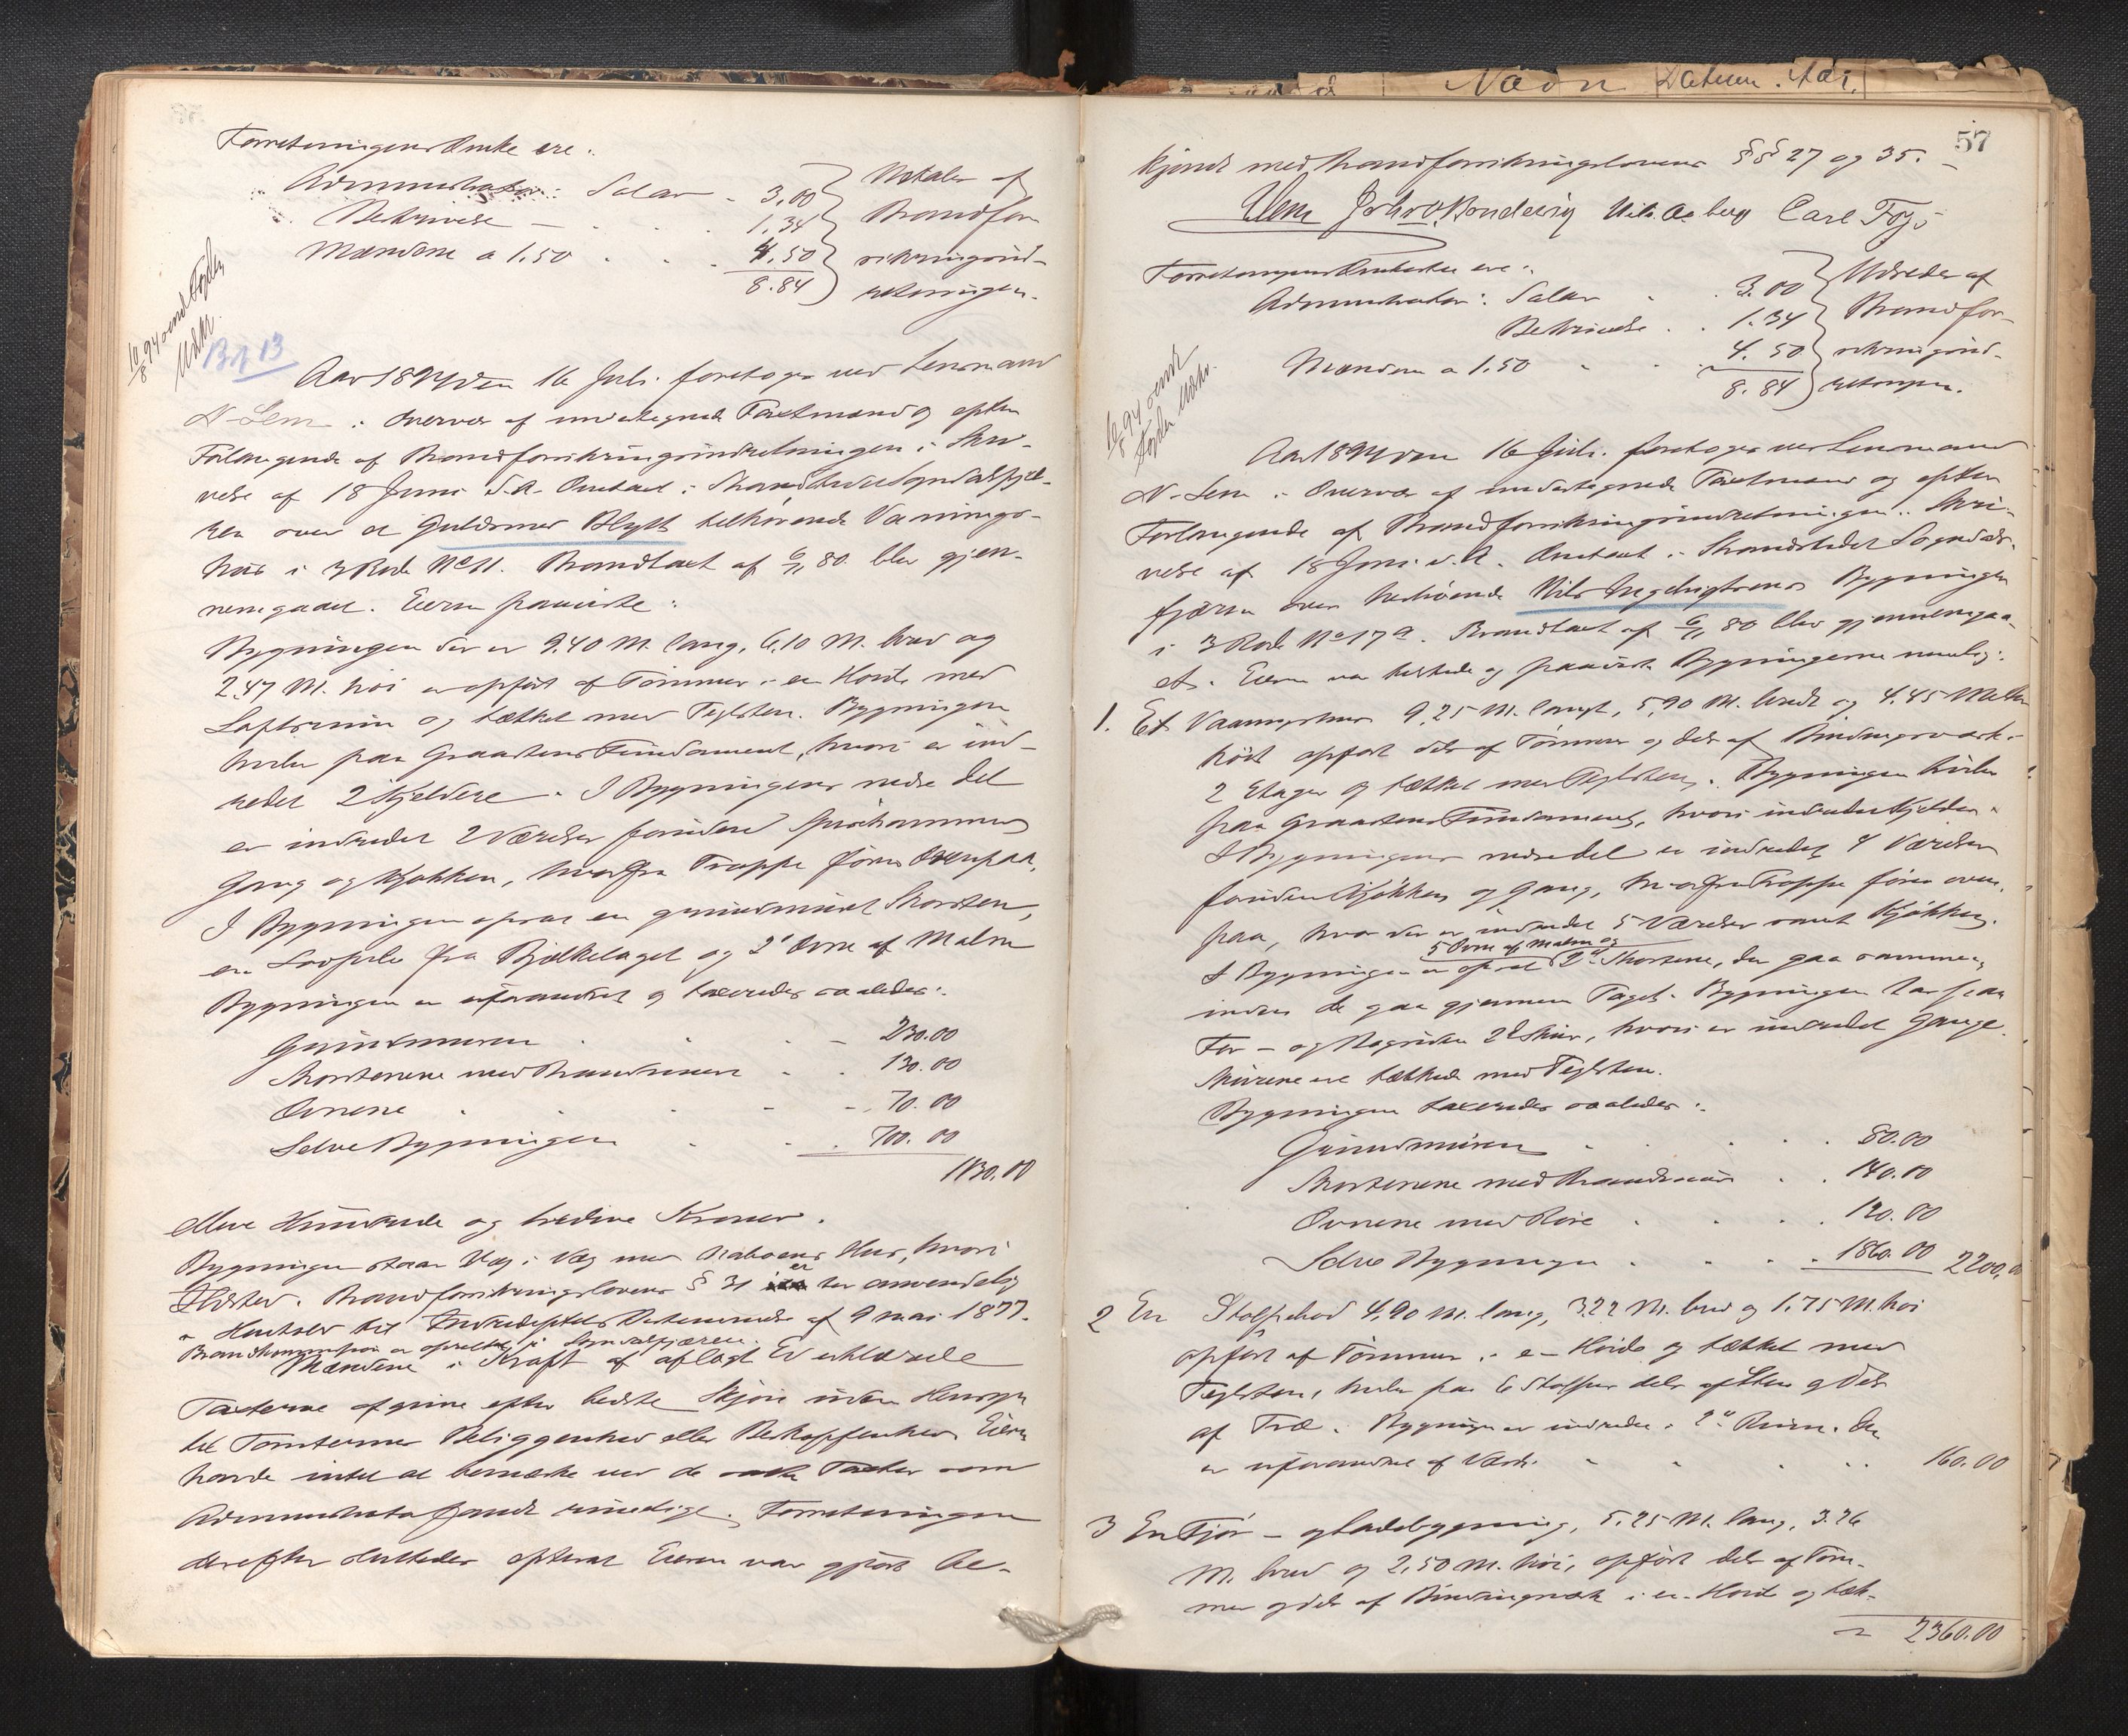 Forretningens Omkr. ere:
Administrator: Salar 3,00
Beskrivelse 1,34
Mændene a 1.50 4,50
8.84
Betales af
Brandfor
sikringsind-
retningen.
10/8 94 sendt Fogden
Udskr.
Bf 13
Aar 1894 den 16 Juli foretoges ved Lensmand
N. Lem i Overvær af undertegnede Taxtmænd og efter
Forlangende af Brandforsikringsindretningen i Skri-
velse af 18 Juni d.A. Omtaxt i Strandstedet Sogndalsfjæ-
ren over et Guldsmed Blytt tilhørende Vaanings-
hus i 3 Rode No 11. Brandtaxt af 80 blev gjen-
nemgaaet. Eieren paaviste:
Bygningen der er 9.40 M. lang, 6,10 M. bred og
2,47 M. høi er opført af Tømmer i en Høide med
Loftsrum og tækket med Teglsten. Bygningen
hviler paa Graastens Fundament, hvori er ind-
redet 2 Kjeldere. I Bygningens nedre Del
er indredet 2 Værelser foruden Spisekammer
Gang og Kjøkken, hvorfra Trappe fører ovenpaa.
I Bygningen opsat en grundmuret Skorsten,
en Lovpibe fra Bjælkelaget og 2 Ovne af Malm
Bygningen er uforandret og taxeredes saaledes:
Grundmuren 230.00
Skorstenene med Brandmure 130.00
Ovnene 70.00
Selve Bygningen 700.00
1130.00
elleve Hundrede og tredive Kroner.
Bygningen staar Væg i Væg med Naboens Hus, hvori
Ildsted. Brandforsikringslovens § 31 er her anvendelig
i Henhold til Indredeptets Bestemmelse af 9 mai 1877.
Brandkommission er oprettet i Sogndalsfjæren.
Mændene i Kraft af aflagt Ed erklærede
Taxterne afgivne efter bedste Skjøn uden Hensyn
til Tomternes Beliggenhed eller Beskaffenhed. Eieren
havde intet at bemærke ved de satte Taxter som
Administrator fandt rimelige. Forretningen
derefter sluttedes efterat Eieren var gjort be-
57
kjendt med Brandforsikringslovens §§ 27 og 35.
Lem Joh. O. Bondevig Nils Aaberg Carl Foss
Forretningens Omkostn. ere:
Administrator: Salar 3.00
Beskrivelse 1.34
Mændene a 1.50 4.50
8.84
Udredes af
Brandfor-
sikringsind-
retningen.
10/8 94 sendt
Fogden Udskr.
Aar 1894 den 16 Juli foretoges ved Lensmand
N. Lem i Overvær af undertegnede Taxtmænd og efter
Forlangende af Brandforsikringsindretningen i Skri-
velse af 18 Juni d.A. Omtaxt i Strandstedet Sogndals-
fjæren over tilhørende Nils Ingebrigtsens Bygninger
i 3 Rode No 17a. Brandtaxt af 80 blev gjennemgaa-
et. Eieren var tilstede og paaviste Bygningerne nemlig:
1. Et Vaaningshus 9,25 M. langt, 5,90 M. bredt og 4,45 Meter
høit opført dels af Tømmer og dels af Bindingsværk i
2 Etager og tækket med Teglsten. Bygningen hviler
paa Graastens Fundament, hvori indredet Kjelder.
I Bygningens nedre Del er indredet 4 Værelser
foruden Kjøkken og Gang, hvorfra Trappe fører oven-
paa, hvor der er indredet 5 Værelser samt Kjøkken.
5 Ovne af Malm og
I Bygningen er opsat 2 Skorstene, der gaa sammen,
inden de gaa gjennem Taget. Bygningen har paa
For- og Bagsiden 2 Skur, hvori er indredet Gange.
Skurene ere tækkede med Teglsten.
Bygningen taxeredes saaledes:
Grundmuren 80.00
Skorstenene med Brandmur 140.00
Ovnene med Røre 120.00
Selve Bygningen 1860.00 2200,00
2 En Stolpebod 4,90 M. lang, 3,22 M. bred og 1,75 M. høi
opført af Tømmer i en Høide og tækket med
Teglsten, hviler paa 6 Stolper dels af Sten og dels
af Træ. Bygningen er indredet i 2 Rum. Den
er uforandret af Værdi 160.00
3 En Fjøs- og Ladebygning, 5,25 M. lang, 3.26
M. bred og 2,50 M. høi, opført dels af Tøm-
mer og dels af Bindingsværk i en Høide og tæk-
2360.00